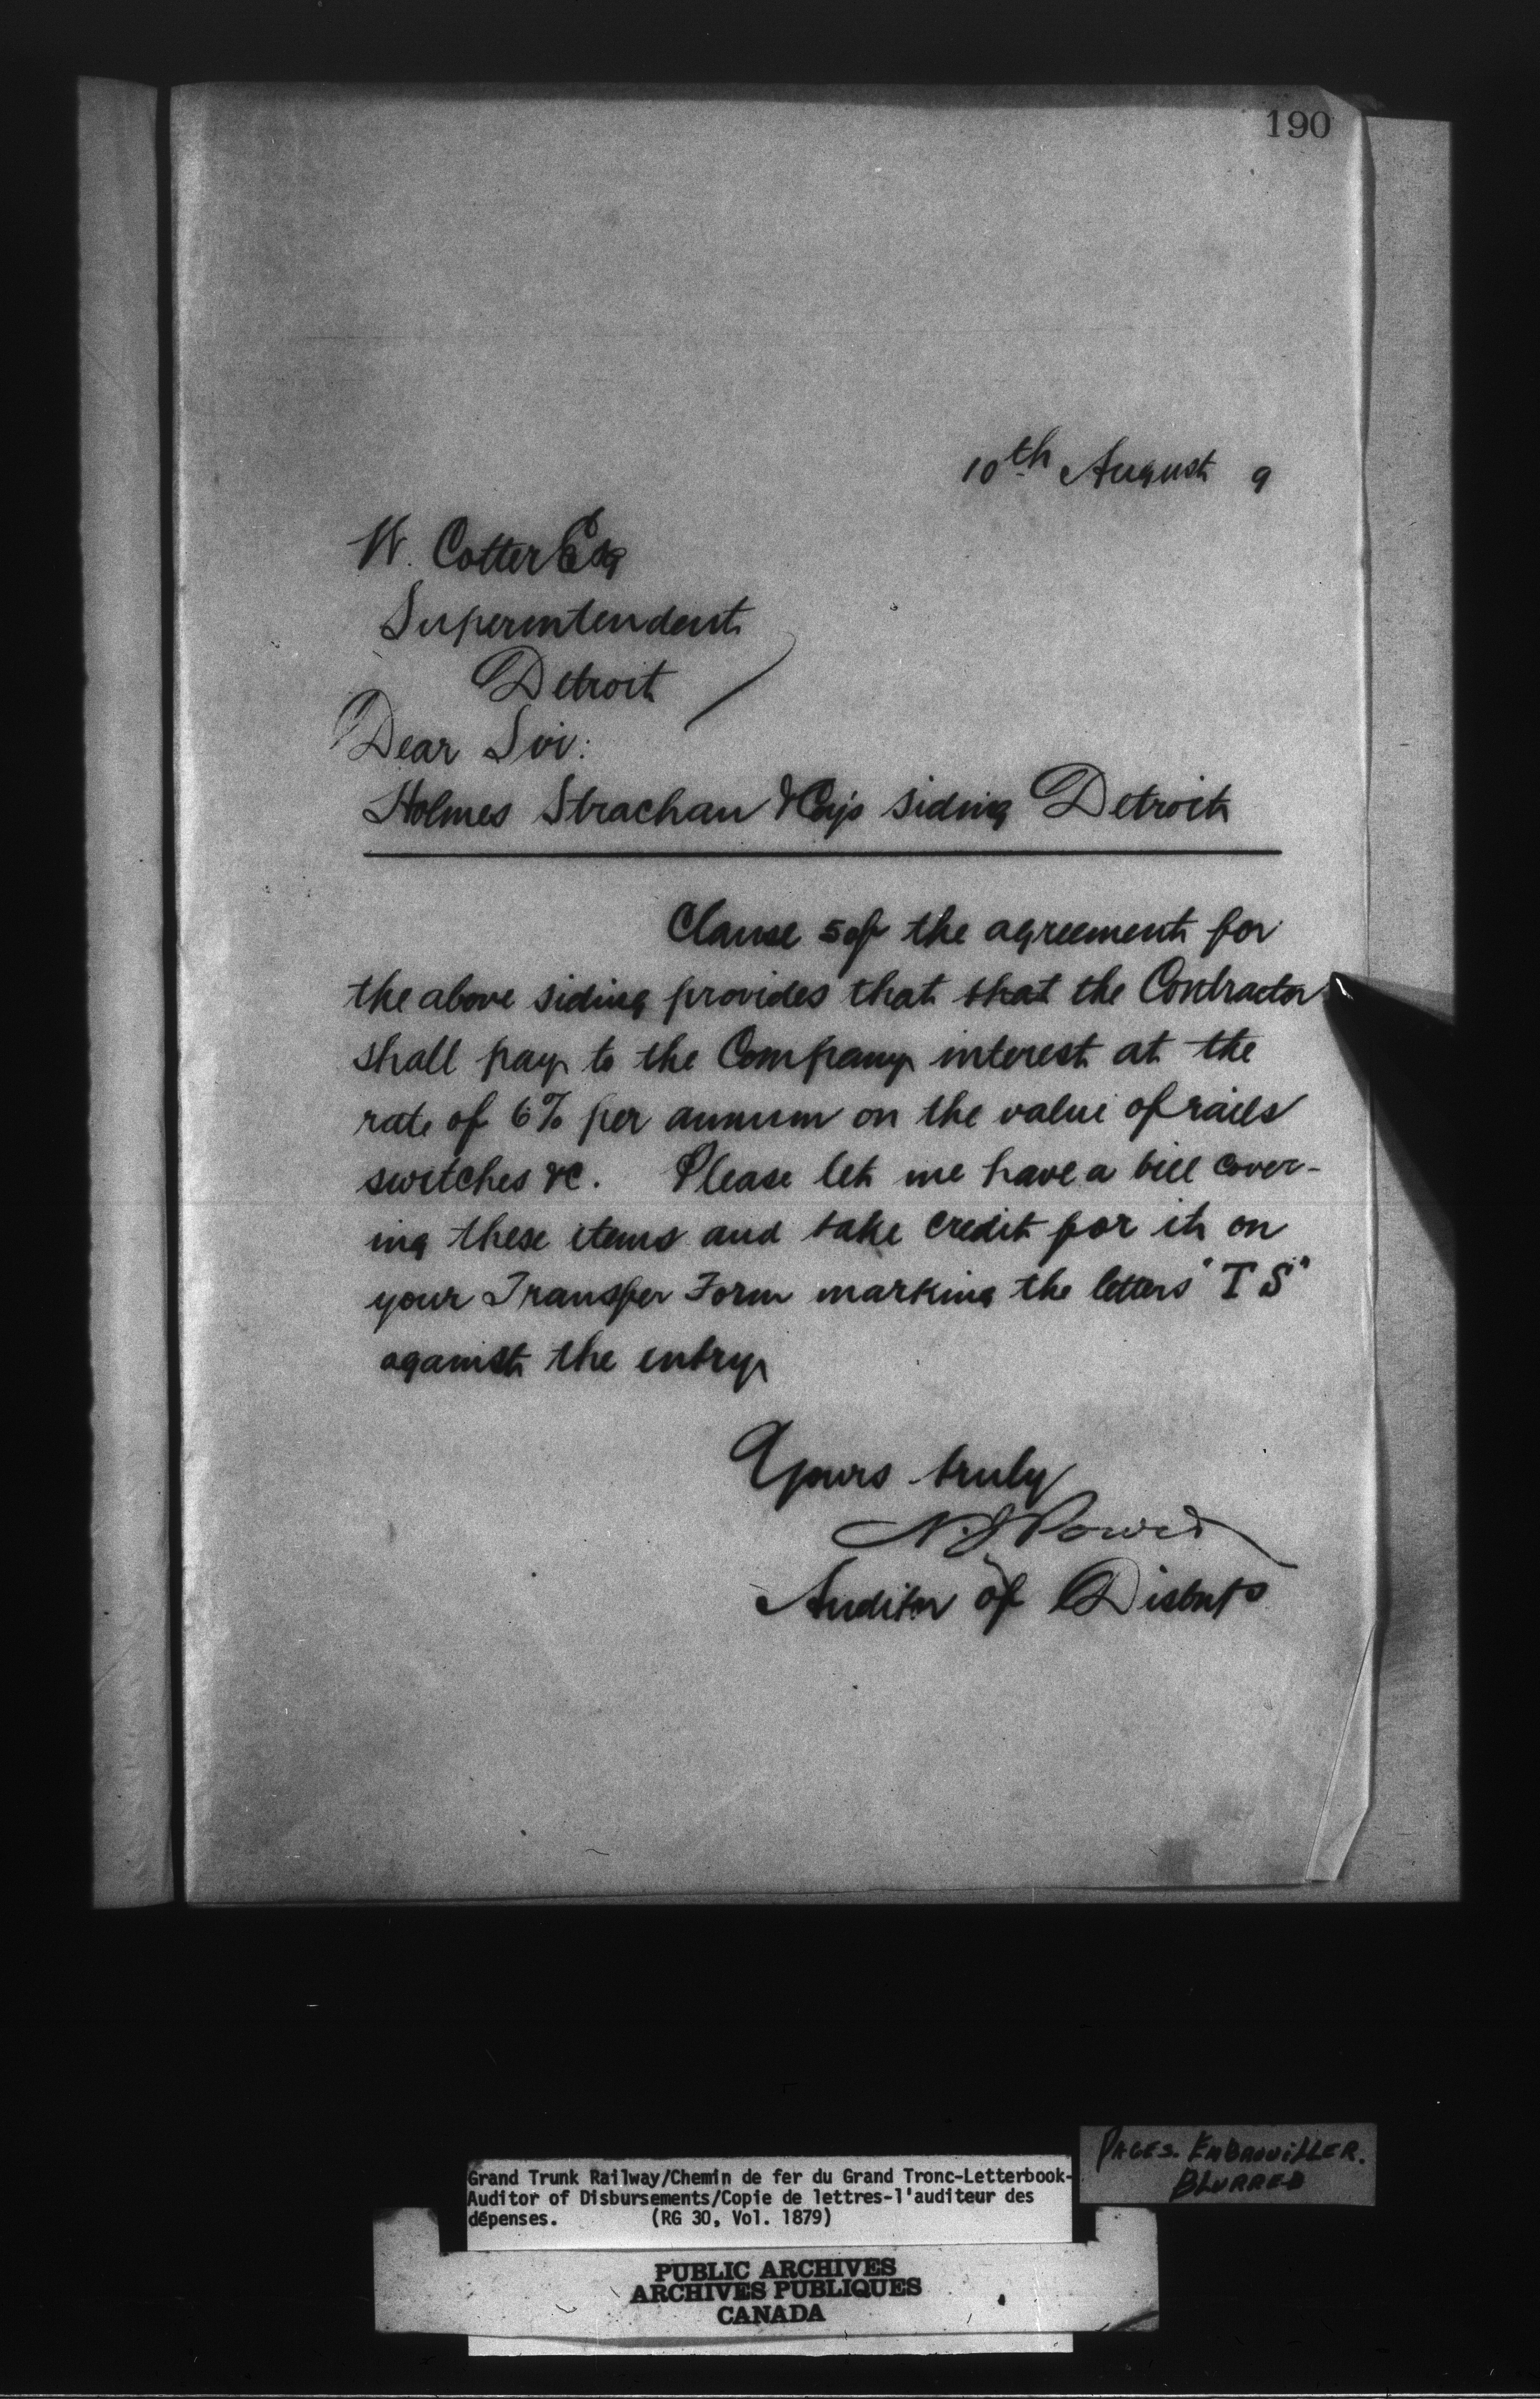 190
10th August 9
W. Cotter Esq
Superintendent
Detroit
Dear Sir:
Holmes Strachan & Coy's siding Detroit
Clause 5 of the agreement for
the above siding provides that that the Contractor
shall pay to the Company interest at the
rate of 6% per annum on the value of rails
switches &c. Please let me have a bill cover-
ing these items and take credit for it on
your Transfer Form marking the letters "T S"
against the entry
Yours truly
N. J. Power
Auditor of Disbnts
PAGES. EMBROUILLER.
BLURRED
Grand Trunk Railway/Chemin de fer du Grand Tronc-Letterbook-
Auditor of Disbursements/Copie de lettres-l'auditeur des
dépenses. (RG 30, Vol. 1879)
PUBLIC ARCHIVES
ARCHIVES PUBLIQUES
CANADA